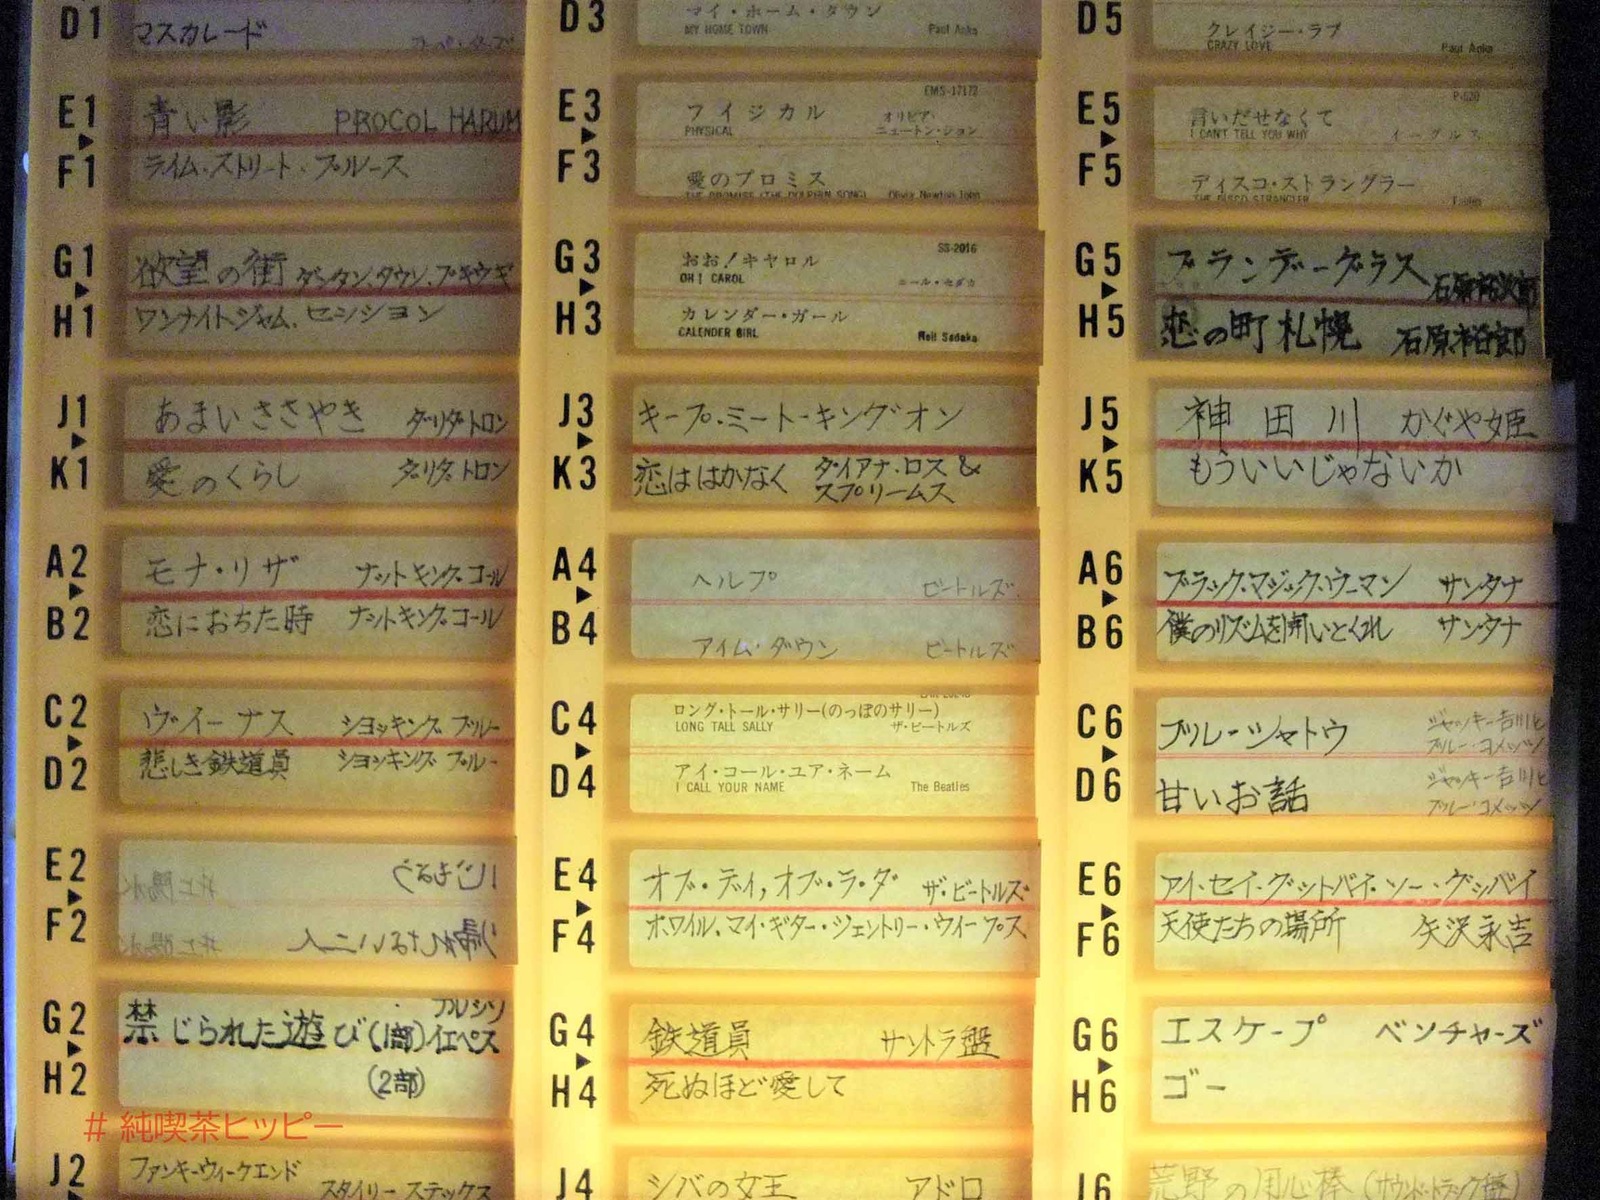 D1
マスカレード
E1
青い影 PROCOL HARUM
F1
ライム・ストリート・ブルース
G1
欲望の街 ダウンタウン・ブギウギ
H1
ワンナイトジャム・セッション
J1
あまいささやき ダリダ・ドロン
K1
愛のくらし ダリダ・ドロン
A2
モナ・リザ ナットキング・コール
B2
恋におちた時 ナットキング・コール
C2
ヴィーナス ショッキング・ブルー
D2
悲しき鉄道員 ショッキング・ブルー
E2
いじまるう 井上陽水
F2
帰れない二人 井上陽水
G2
禁じられた遊び(1部) ナルシソ イエペス
H2
(2部)
# 純喫茶ヒッピー
J2
ファンキーウィークエンド
スタイリースティックス
D3
マイ・ホーム・タウン
MY HOME TOWN Paul Anka
E3
EMS-17172
フィジカル オリビア・
PHYSICAL ニュートン・ジョン
F3
愛のプロミス
THE PROMISE (THE DOLPHIN SONG) Olivia Newton John
G3
SS-2016
おお!キャロル
OH! CAROL ニール・セダカ
H3
カレンダー・ガール
CALENDER GIRL Neil Sedaka
J3
キープ・ミートーキングオン
K3
恋ははかなく ダイアナ・ロス &
スプリームス
A4
ヘルプ ビートルズ
B4
アイム・ダウン ビートルズ
C4
ロング・トール・サリー(のっぽのサリー)
LONG TALL SALLY ザ・ビートルズ
D4
アイ・コール・ユア・ネーム
I CALL YOUR NAME The Beatles
E4
オブ・ディ,オブ・ラ・ダ ザ・ビートルズ
F4
ホワイル、マイ・ギター・ジェントリー・ウィープス
G4
鉄道員 サントラ盤
H4
死ぬほど愛して
J4
シバの女王 アドロ
D5
クレイジー・ラブ
CRAZY LOVE Paul Anka
E5
言いだせなくて
I CAN'T TELL YOU WHY イーグルス
F5
ディスコ・ストラングラー
THE DISCO STRANGLER Eagles
G5
ブランデーグラス 石原裕次郎
H5
恋の町札幌 石原裕次郎
J5
神田川 かぐや姫
K5
もういいじゃないか
A6
ブラック・マジック・ウーマン サンタナ
B6
僕のリズムを聞いとくれ サンタナ
C6
ブルーシャトウ ジャッキー吉川と
ブルー・コメッツ
D6
甘いお話 ジャッキー吉川と
ブルー・コメッツ
E6
アイ・セイ・グットバイ・ソー・グッバイ
F6
天使たちの場所 矢沢永吉
G6
エスケープ ベンチャーズ
H6
ゴー
J6
荒野の用心棒 (サウンド・トラック盤)